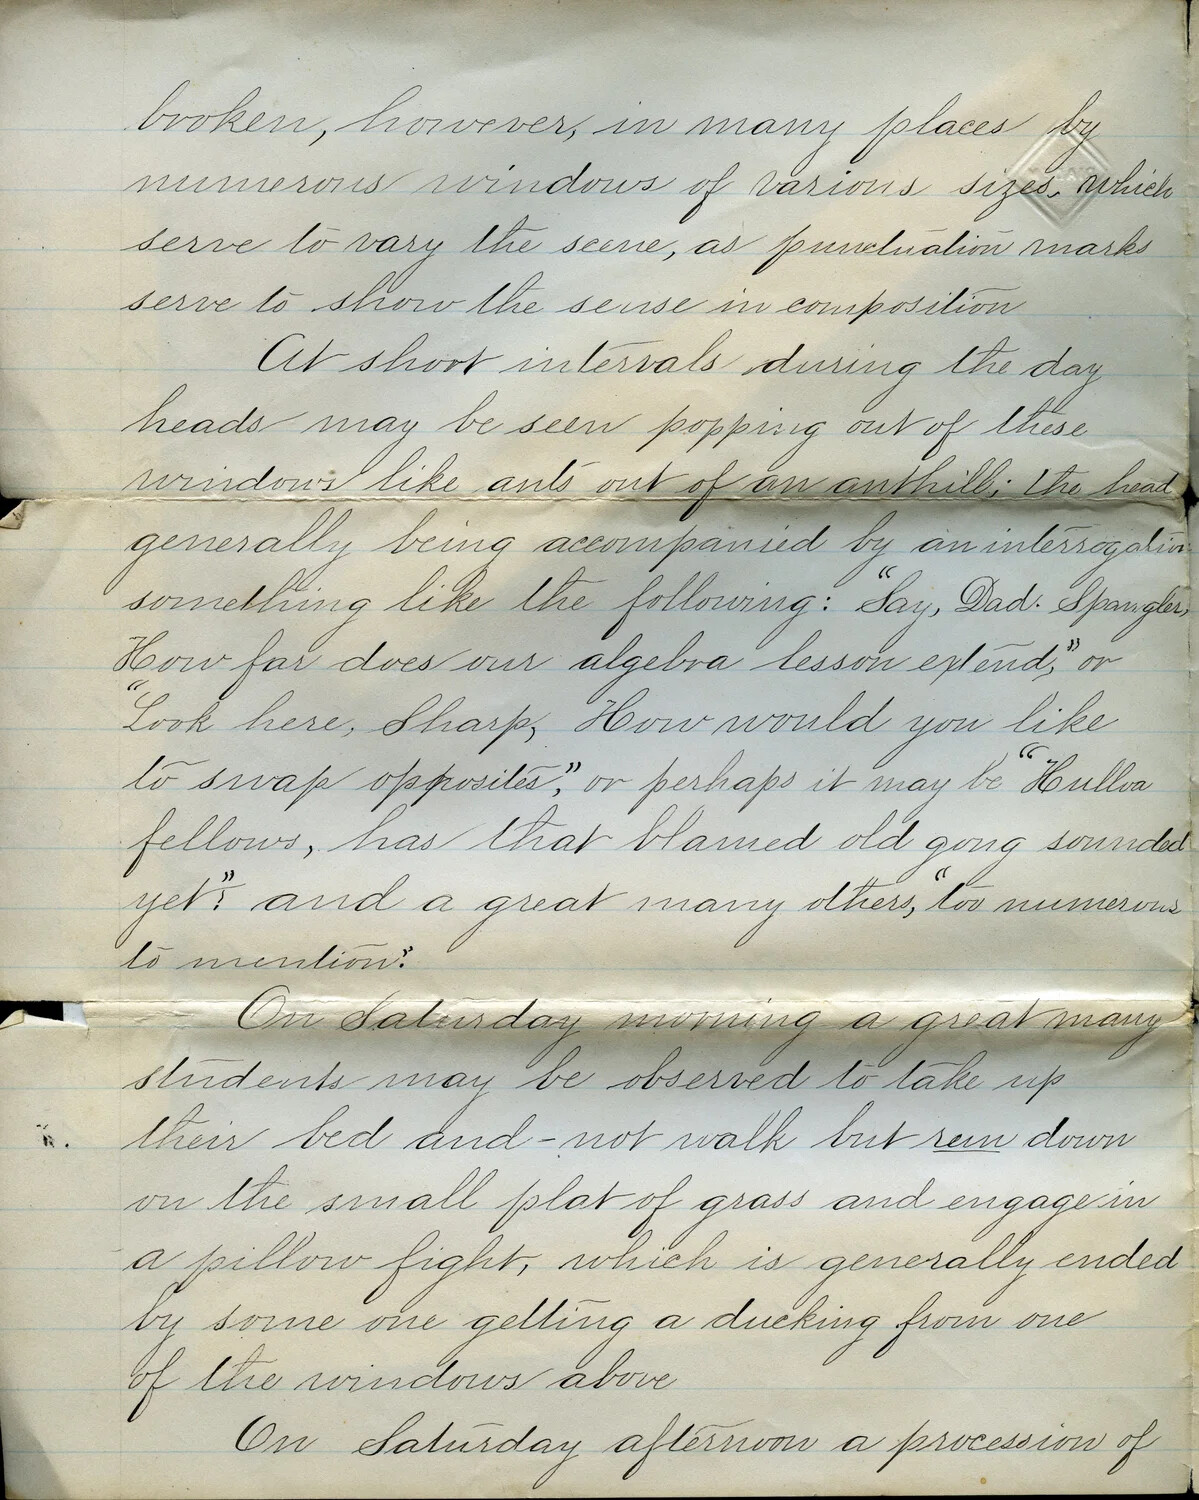 broken, however, in many places by
numerous windows of various sizes, which
serve to vary the scene, as punctuation marks
serve to show the sense in composition
At short intervals during the day
heads may be seen popping out of these
windows like ants out of an anthill; the head
generally being accompanied by an interrogation
something like the following: "Say, Dad. Spangler,
How far does our algebra lesson extend," or
"Look here, Sharp, How would you like
to swap opposites," or perhaps it may be "Hulloa
fellows, has that blamed old gong sounded
yet"? and a great many others, "too numerous
to mention."
On Saturday morning a great many
students may be observed to take up
their bed and - not walk but run down
on the small plat of grass and engage in
a pillow fight, which is generally ended
by some one getting a ducking from one
of the windows above
On Saturday afternoon a procession of